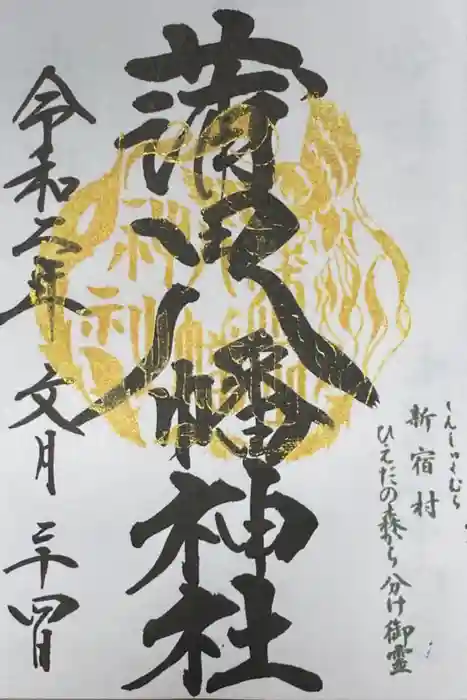 しんしゅくむら
新宿村
ひえだの森から 分け御霊
蒲田八幡神社
令和二年 文月 二十四日